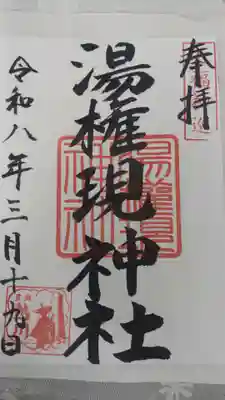 奉拝
湯権現神社
令和八年三月十九日